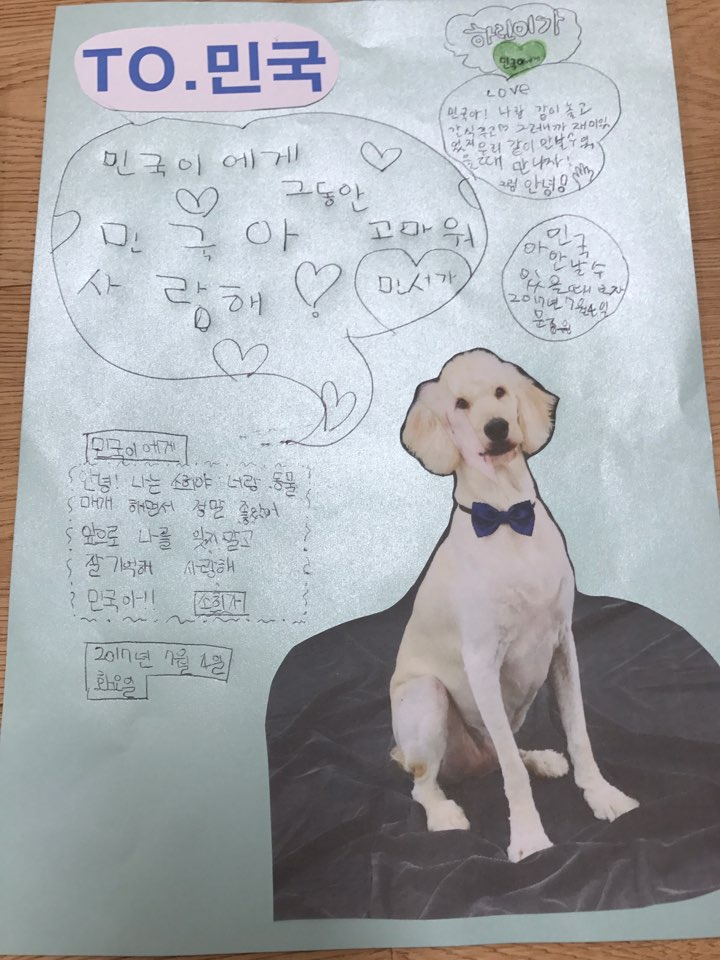 TO.민국
민국이에게
그동안
민국아 고마워
사랑해
민서가
하린이가
민국이에게
Love
민국아! 나랑 같이 놀고
간식주고 그래니까 재미있
었져 우리 같이 만날수 있
을때 만나자!
그럼 안녕
민국
아 만날수
있을때 보자
2017년 7월 4일
민국이에게
안녕! 나는 소희야 너랑 동물
매개 하면서 정말 좋았어
앞으로 나를 잊지말고
잘 기억해 사랑해
민국아!!
2017년 7월 4일
화요일